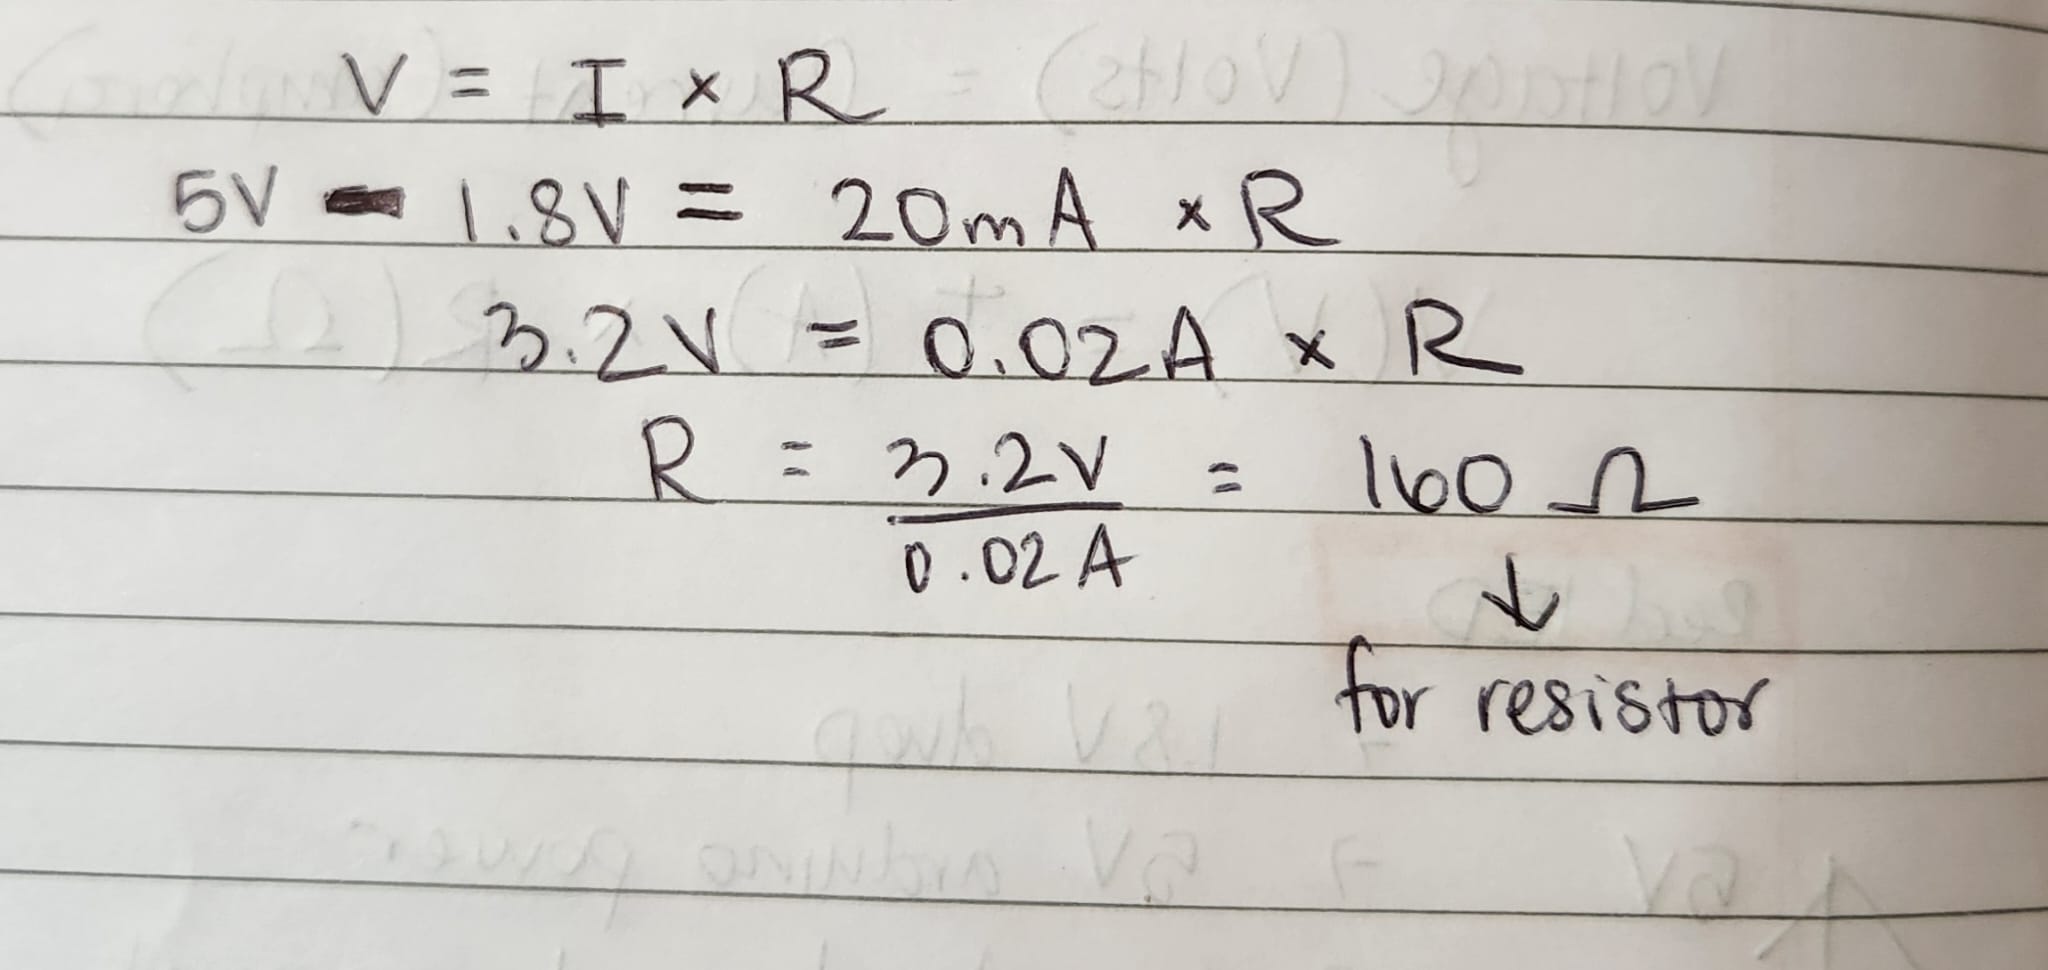 V = I × R
5V - 1.8V = 20mA × R
3.2V = 0.02A × R
R = 3.2V = 160 Ω
0.02A
↓
for resistor